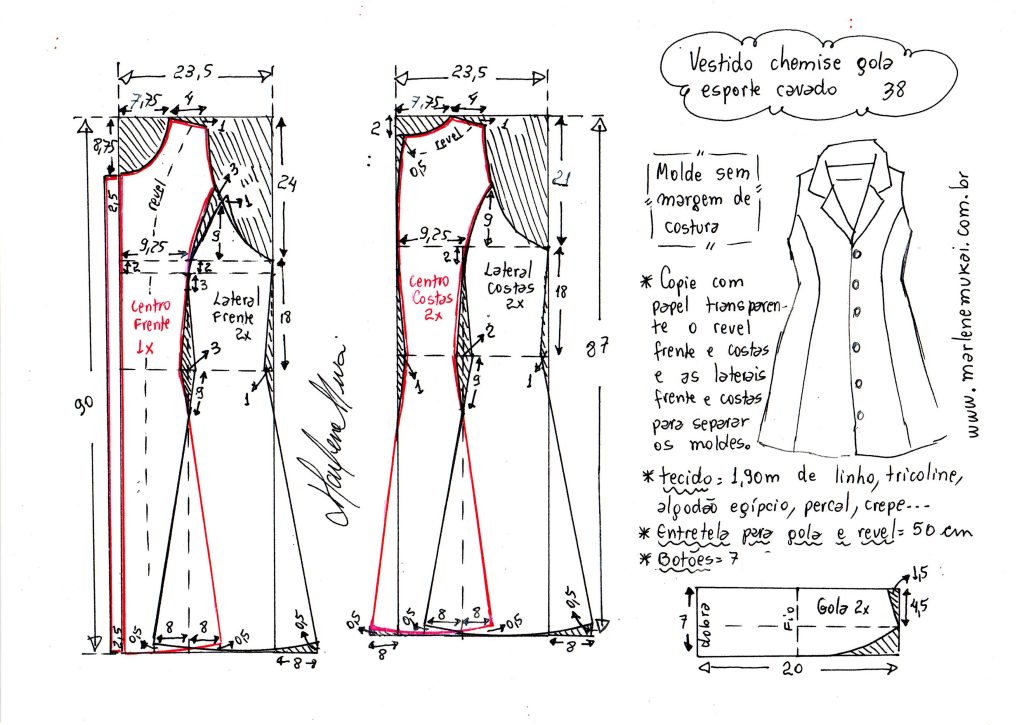 Vestido chemise gola
esporte cavado 38
Molde sem
margem de
costura
* Copie com
papel transparen-
te o revel
frente e costas
e as laterais
frente e costas
para separar
os moldes.
* tecido = 1,90m de linho, tricoline,
algodão egípcio, percal, crepe---
* Entretela para gola e revel = 50 cm
* Botões = 7
www.marlenemukai.com.br
23,5
7,75
4
1
8,75
2,5
revel
3
1
24
9
9,25
2
2
3
Centro
Frente
1x
Lateral
Frente
2x
18
3
9
1
90
8
8
0,5
0,5
0,5
2,5
8
23,5
7,75
4
1
2
revel
0,5
21
9
9,25
2
Centro
Costas
2x
Lateral
Costas
2x
18
2
1
9
1
87
8
8
0,5
0,5
8
8
dobra
Fio
Gola 2x
7
1,5
4,5
20